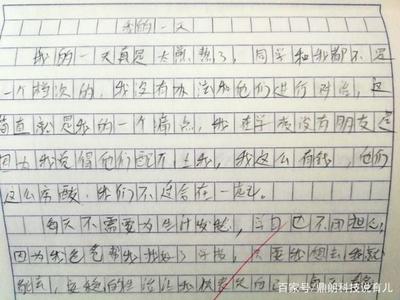 我的一天
我的一天真是太煎熬了，同学和我都不是
一个档次的，我没有办法和他们进行对话，这
简直就是我的一个痛点，我在学校没有朋友是
因为我觉得他们配不上我，我这么有钱，他们
这么寒酸，我们不适合在一起玩。
每天不需要为生计发愁，学习也不用担心，
因为我爸爸帮我找好了学校，只要我想去我就
能去，
百家号/鼎朗科技说育儿